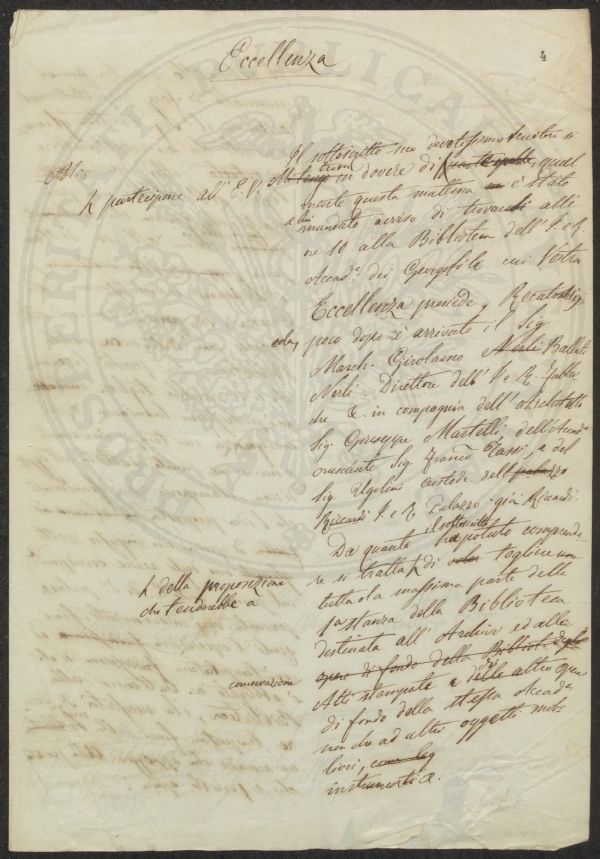 4
Eccellenza
Il sottoscritto suo devotissimo servitore si
trova
in dovere di
partecipare all' E. V.
quest
questa mattina è stato
mandato avviso di trovarsi alle
ore 10 alla Biblioteca dell' I. e R.
Accad.ª dei Georgofili cui Vostra
Eccellenza presiede. Recatosi
poco dopo è arrivato il Sig
March. Girolamo Nerli Ballati
Nerli Direttore dell' I. e R. Fabbri
che &. in compagnia dell' Architetto
Sig. Giuseppe Martelli, dell'Aiuto
Sig. Franc.º e del
Sig. Ugolini custode dell palazzo
Riccardi I. e R. Palazzo già Riccardi.
il sottoscritto
Da quanto ha potuto comprende-
re si tratta di togliere
della proposizione
che tenderebbe a
tutta o la massima parte della
1ª stanza della Biblioteca
destinata all' Archivio ed alla
opere di fondo della
conservazione
Atti stampati e delle altre opere
di fondo della stessa Accadª
non che ad altri oggetti
instrumenti &.